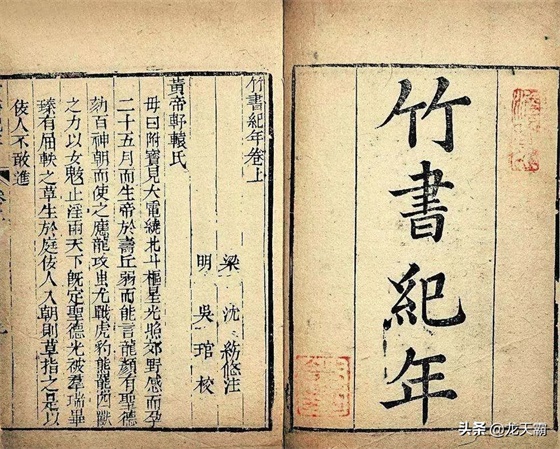 竹書紀年
竹書紀年卷上
梁 沈約附注
明 吳琯校
黃帝軒轅氏
母曰附寶見大電繞北斗樞星光照郊野感而孕
二十五月而生帝於壽丘弱而能言龍顏有聖德
劾百神朝而使之應龍攻蚩尤戰虎豹熊羆四獸
之力以女魃止淫雨天下既定聖德光被羣瑞畢
臻有屈軼之草生於庭佞人入朝則草指之是以
佞人不敢進
头条 @龙天霸